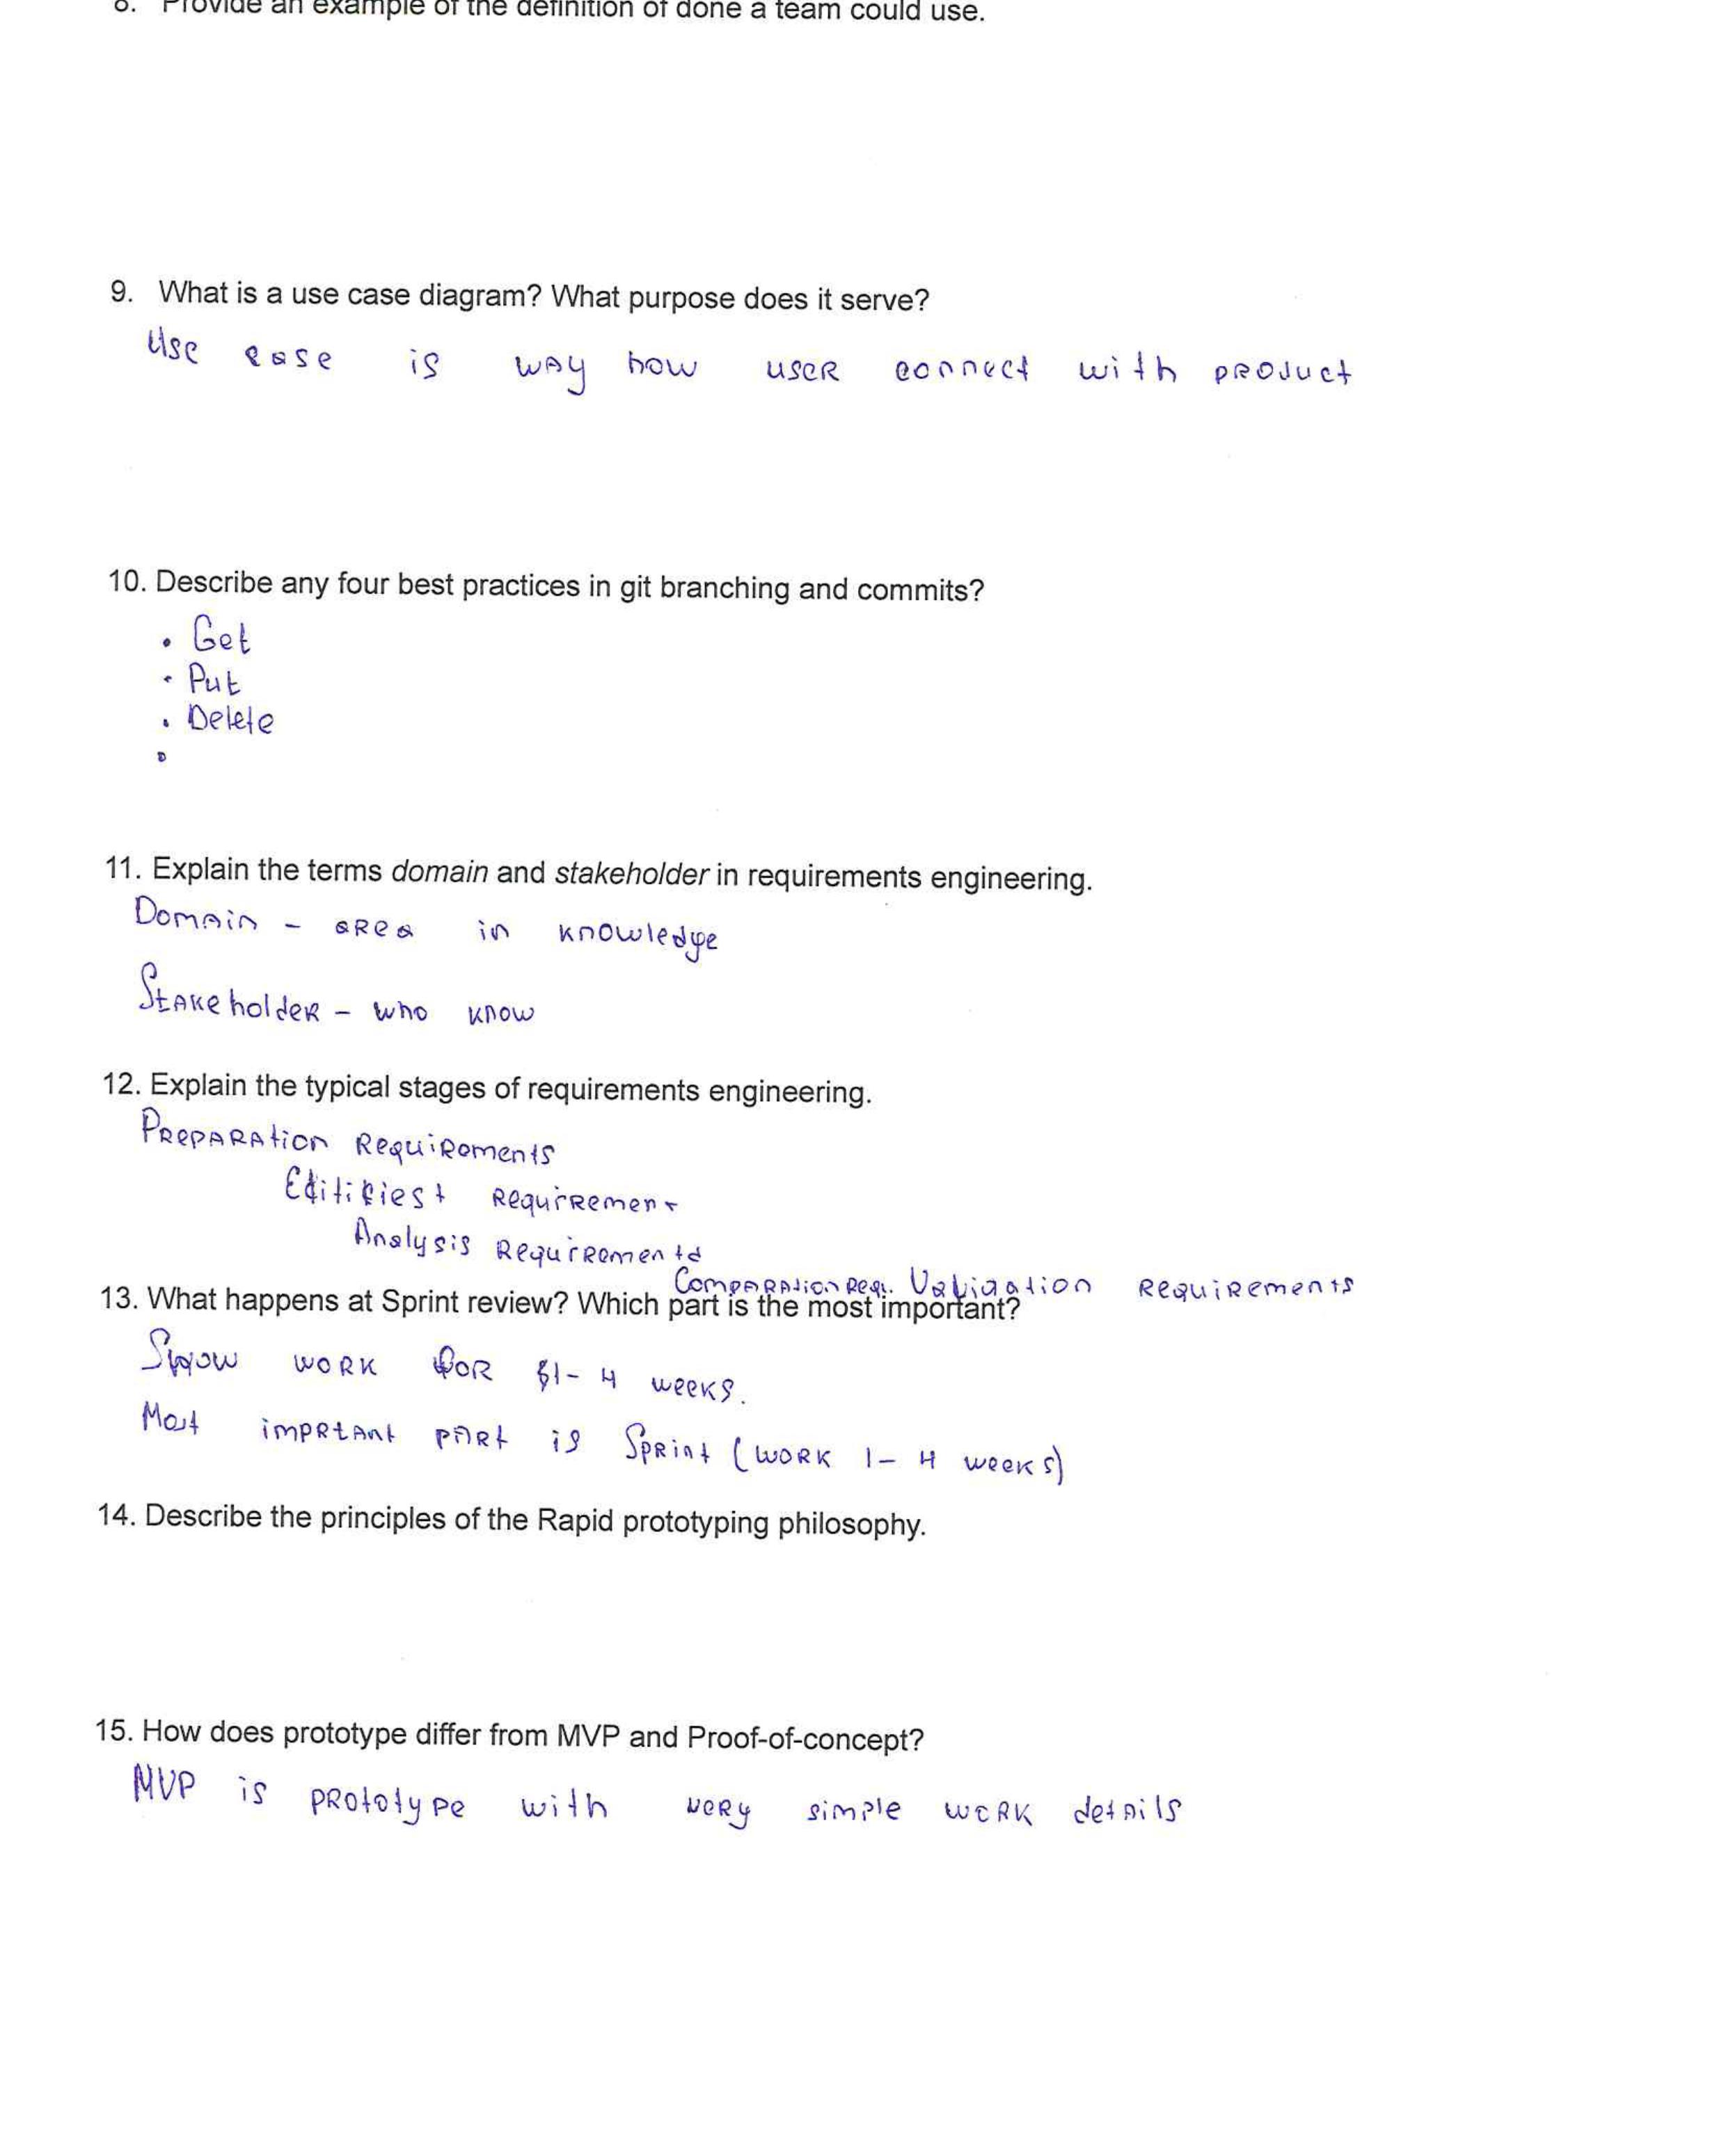 8. Provide an example of the definition of done a team could use.
9. What is a use case diagram? What purpose does it serve?
Use case is way how user connect with product
10. Describe any four best practices in git branching and commits?
• Get
• Put
• Delete
•
11. Explain the terms domain and stakeholder in requirements engineering.
Domain - area in knowledge
Stakeholder - who know
12. Explain the typical stages of requirements engineering.
Preparation Requirements
Requirement
Analysis Requirements
Comparation Requ. Validation Requirements
13. What happens at Sprint review? Which part is the most important?
Show work for 1-4 weeks.
Most imprtant part is Sprint (work 1-4 weeks)
14. Describe the principles of the Rapid prototyping philosophy.
15. How does prototype differ from MVP and Proof-of-concept?
MVP is prototype with very simple work details